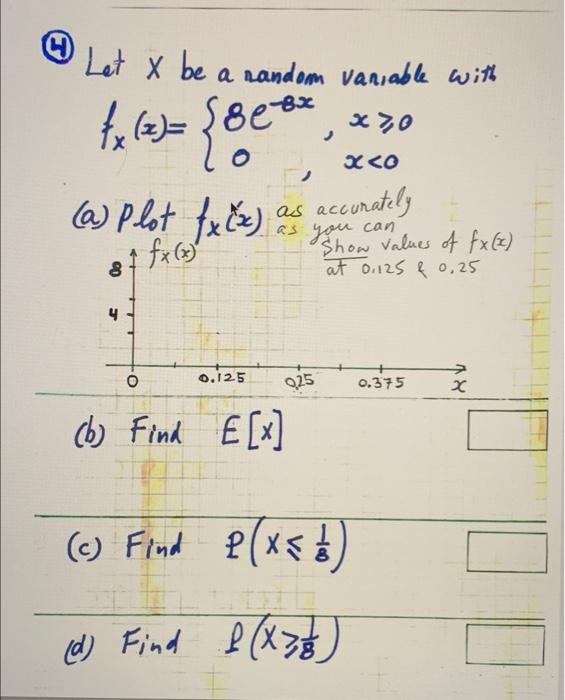 ④ Let X be a random variable with
fₓ(x) = { 8e^{-8x} , x ≥ 0
0 , x < 0
(a) Plot fₓ(x) as accurately
as you can
Show values of fₓ(x)
at 0.125 & 0.25
fₓ(x)
8
4
0 0.125 0.25 0.375 x
(b) Find E[X]
(c) Find P(X ≤ 1/8)
(d) Find P(X ≥ 1/8)